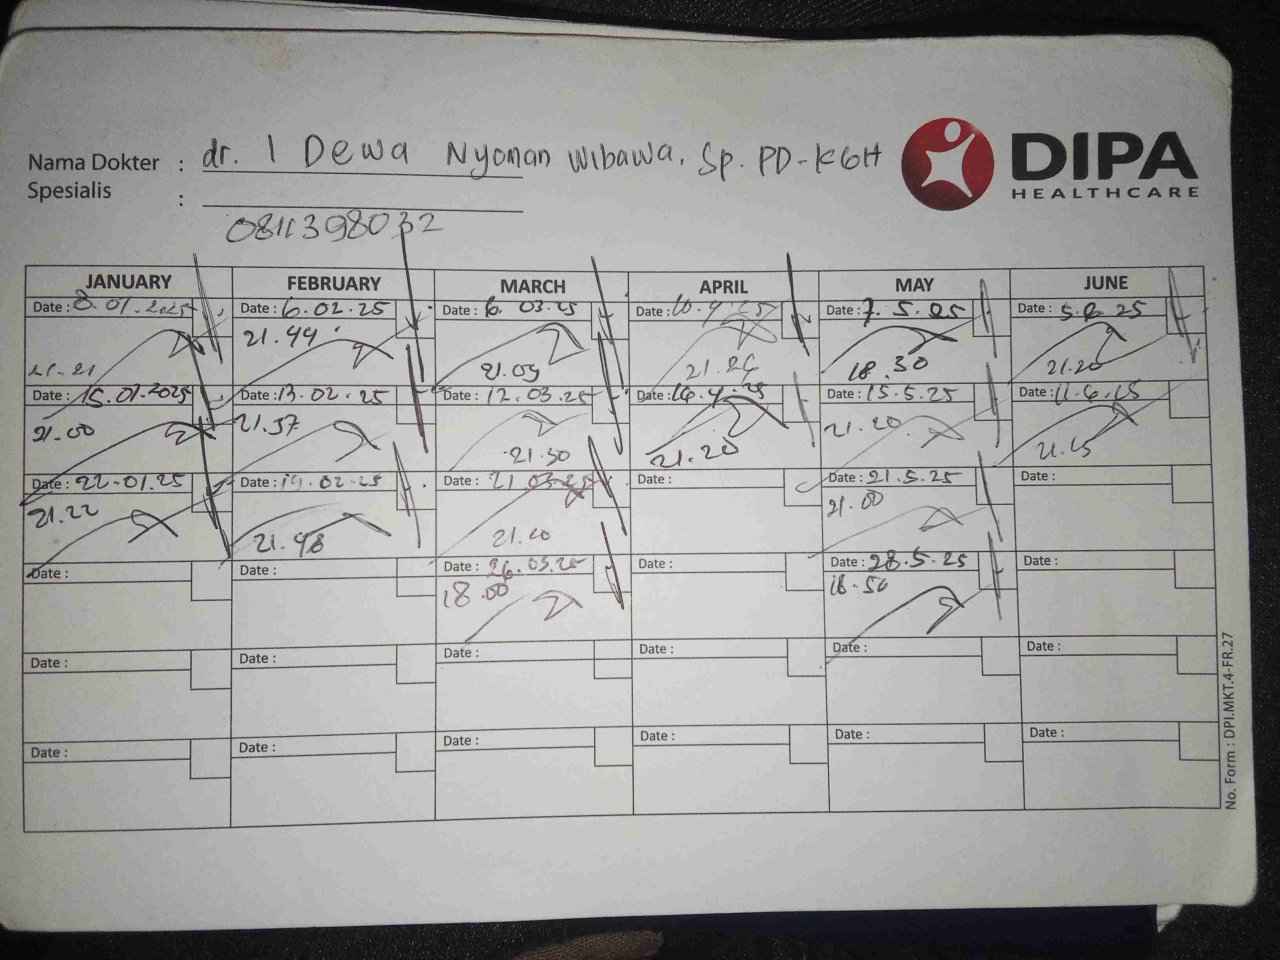 DIPA
HEALTHCARE
Nama Dokter : dr. I Dewa Nyoman Wibawa, Sp. PD-KGH
Spesialis :
0811398032
JANUARY FEBRUARY MARCH APRIL MAY JUNE
Date : 8.01.2025 Date : 6.02.25 Date : 6.03.25 Date : 10.4.25 Date : 7.5.25 Date : 5.6.25
21.21 21.44 21.09 21.26 18.30 21.20
Date : 15.01.2025 Date : 13.02.25 Date : 12.03.25 Date : 16.4.25 Date : 15.5.25 Date : 11.6.25
21.00 21.37 21.30 21.20 21.20
Date : 22-01.25 Date : 19.02.25 Date : 21.03.25 Date : Date : 21.5.25 Date :
21.22 21.48 21.00
Date : Date : Date : 26.03.25 Date : Date : 28.5.25 Date :
18.00 18.50
Date : Date : Date : Date : Date : Date :
Date : Date : Date : Date : Date : Date :
No. Form : DPI.MKT.4-FR.27